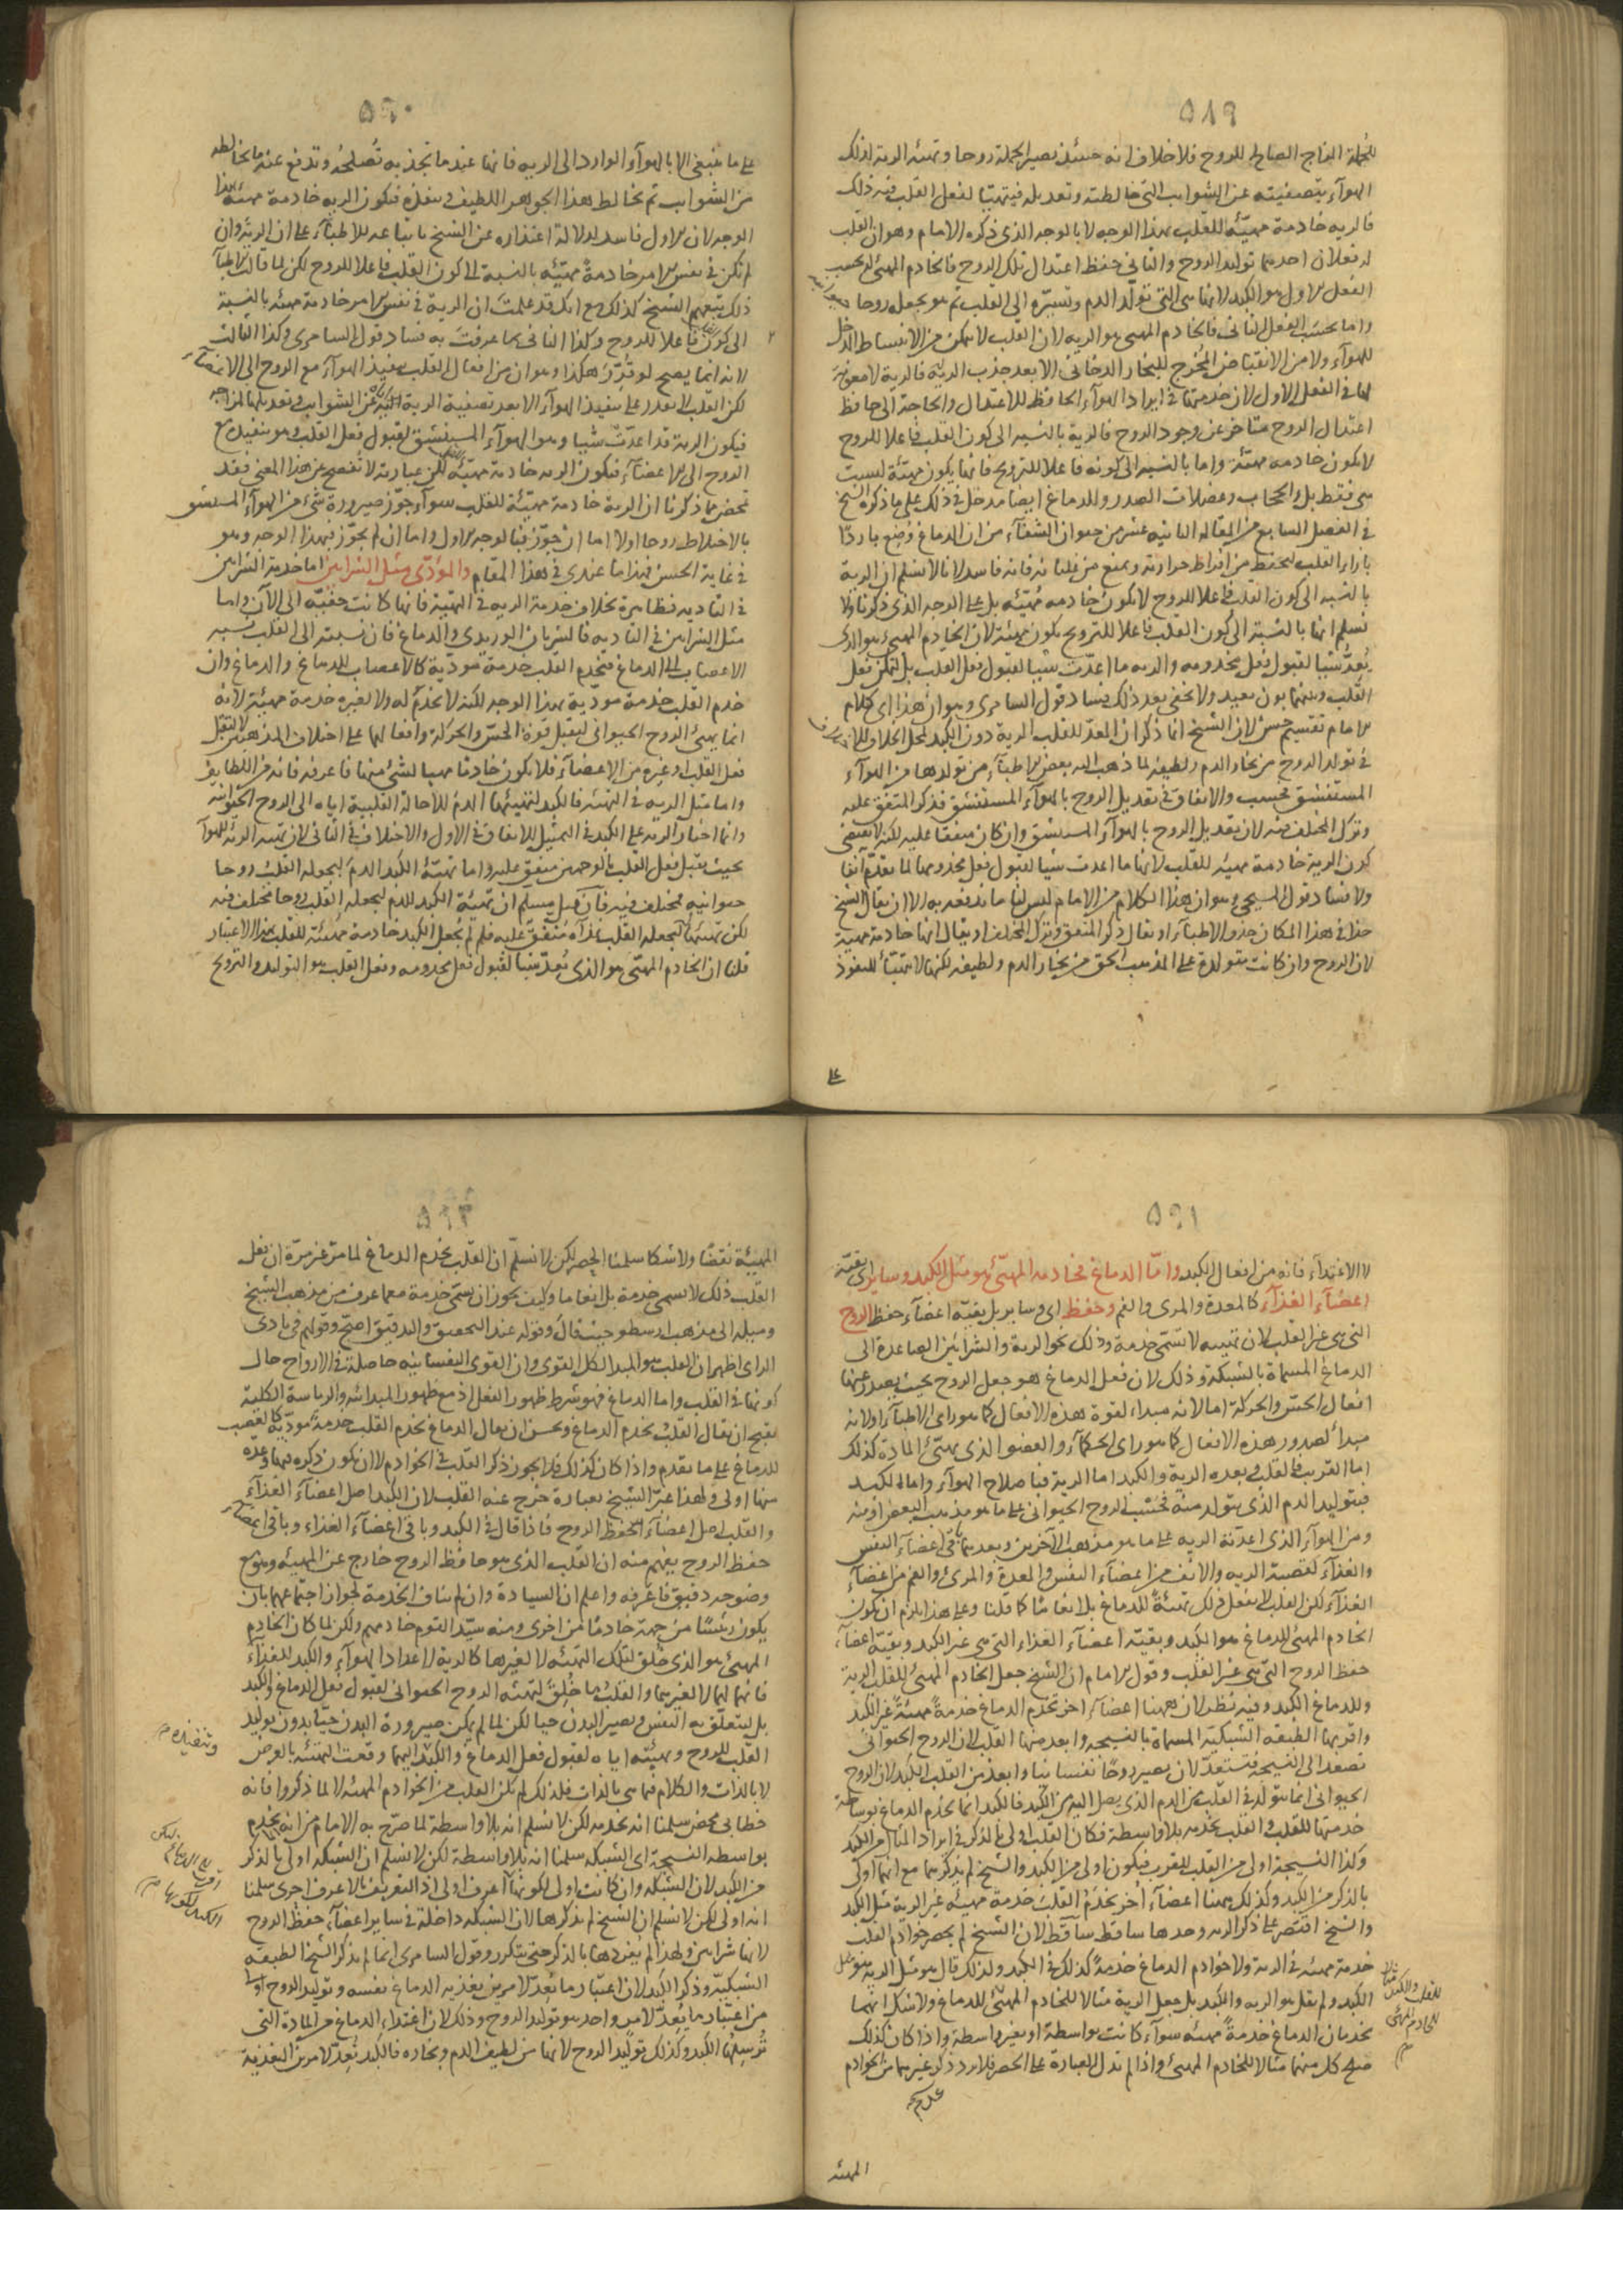 ٥٨٩
للجملة المزاج الصالح للروح فلا خلاف انه حينئذ يصير الجملة روحا وتهيئة الرية لذلك
الهوآء بتصفيته عن الشوايب التى خالطته وتعديله فيتهيّا لفعل القلب فيه ذلك
فالريه خادمة مهيّئه للقلب بهذا الوجه لا بالوجه الذى ذكره الامام وهو ان القلب
له فعلان احدهما توليد الروح والثانى حفظ اعتدال تلك الروح فالخادم المهيئ له بحسب
الفعل الاول هو الكبد لانها هى التى تولّد الدم وتسيّره الى القلب ثم هو يجعله روحا
واما بحسب الفعل الثانى فالخادم المهيى هو الريه لان القلب لا يتمكن من الانبساط المدخل
للهوآء ولا من الانقباض المُخرج للبخار الدخانى الا بعد جذب الريّة فالرية لا معونة
لها فى الفعل الاول لان خدمتها فى ايراد الهوآء الحافظ للاعتدال والحاجة الى حافظ
اعتدال الروح متاخر عن وجود الروح فالرية بالنسبه الى كون القلب فاعلا للروح
لا يكون خادمه مهيّئة واما بالنسبه الى كونه فاعلا للترويح فانها يكون مهيّئة ليست
هى فقط بل والحجاب وعضلات الصدر وللدماغ ايضا مدخل فى ذلك على ما ذكره الشيخ
فى الفصل السابع من المقاله الثانيه عشر من حيوان الشفآء من ان الدماغ وُضِع باردًا
بازاء القلب ليحفظ من افراط حرارته ويمنع من غليانه فانه فاسد لانا لا نسلم ان الرية
بالنسبه الى كون القلب فاعلا للروح لا يكون خادمه مُهيّئه بل على الوجه الذى ذكرنا ولا
نسلم انها بالنسبة الى كون القلب فاعلا للترويح يكون مهيئة لان الخادم المهيى هو الذى
يُعِدّ شيًا لقبول فعل مخدومه والريه ما اعدّت شيًا لقبول فعل القلب بل لتمكن فعل
القلب وبينهما بون بعيد ولا يخفى بعد ذلك فساد قول السامرى وهو ان هذا اى كلام
الامام تقسيم حسن لان الشيخ انما ذكر ان المعدّ للقلب الرية دون الكبد لمحل الخلاف
فى تولد الروح من بخار الدم ولطيفه لما ذهب اليه بعض الاطبآء من تولدها من الهوآء
المستنشق فحسب والاتفاق فى تعديل الروح بالهوآء المستنشق فذكر المتفق عليه
وترك المختلف فيه لان تعديل الروح بالهوآء المستنشق وان كان متفقا عليه لكنه لا يقتضى
كون الرية خادمة مهيئه للقلب لانها ما اعدت شيا لقبول فعل مخدومها لما تقدّم آنفا
ولا فساد قول المسيحى وهو ان هذا الكلام من الامام ليس لنا ما ندفعه به الا ان يقال الشيخ
حذا فى هذا المكان حذو الاطبآء او يقال ذكر المتفق وترك المختلف او يقال انها خادمة مهيئة
لان الروح وان كانت متولدة على المذهب الحق من بخار الدم ولطيفه لكنها لا تتهيّأ للنفوذ
على
٥٩٠
على ما ينبغى الا بالهوآء الوارد الى الريه فانها عندما تجذبه تُصلحهُ وتدفع عنه ما يخالطه
من الشوايب ثم يخالط هذا الجوهر اللطيف وينفذه فيكون الريه خادمة مهيئة بهذا
الوجه لان الاول فاسد لدلالة اعتذاره عن الشيخ باتباعه للاطبآء على ان الرئة وان
لم تكن فى نفس الامر خادمةً مهيّئه بالنسبة الى كون القلب فاعلا للروح لكن لما قالت الاطبآء
ذلك تبعهم الشيخ كذلك مع انك قد علمتَ ان الرية فى نفس الامر خادمة مهيئه بالنسبة
الى كونه فاعلا للروح وكذا الثانى بما عرفتَ به فساد قول السامرى وكذا الثالث
لانه انما يصح لو قُدِّر هكذا وهو ان من افعال القلب تنفيذ الهوآء مع الروح الى الاعضآء
لكن القلب لا يقدر على تنفيذ الهوآء الا بعد تصفية الرية اياه عن الشوايب وتعديلها لمزاجه
فيكون الرية قد اعدّت شيا وهو الهوآء المستنشق لقبول فعل القلب وهو تنفيذه مع
الروح الى الاعضآء فيكون الريه خادمة مهيّئه لكن عبارته لا تفصح عن هذا المعنى فقد
تمحض مما ذكرنا ان الرية خادمة مهيّئة للقلب سوآء جوّز صيرورة شئ من الهوآء المستنشق
بالاختلاط روحا اولا اما ان جُوّز فبالوجه الاول واما ان لم يجوّز فبهذا الوجه وهو
فى غاية الحسن فهذا ما عندى فى هذا المقام والمودّى مثل الشرايين اما خدمة الشرايين
فى التاديه فظاهرة بخلاف خدمة الريه فى التهيّة فانها كانت خفيّه الى الآن واما
مثل الشرايين فى التاديه فالشريان الوريدى والدماغ فان نسبته الى القلب نسبه
الاعصاب الى الدماغ فيخدم القلب خدمة موديّة كالاعصاب للدماغ والدماغ وان
خدم القلب خدمة مودّية بهذا الوجه لكنه لا يخدم له ولا لغيره خدمة مهيئة لانه
انما يهيئ الروح الحيوانى ليقبل قوة الحسّ والحركة وافعالهما على اختلاف المذهبين لا لتقبل
فعل القلب او غيره من الاعضآء فلا يكون خادما مهييا لشئ منها فاعرفه فانه من اللطايف
واما مثل الريه فى التهيئه فالكبد لتهيئها الدم للاحالة القلبية اياه الى الروح الحيوانية
وانما اختار الريه على الكبد فى التمثيل للاتفاق فى الاول والاختلاف فى الثانى لان تهيئه الريه للهوآ
بحيث يقبل فعل القلب بالوجهين متفق عليه واما تهيئة الكبد الدم ليجعله القلب روحا
حيوانيه فمختلف فيه فان قيل يسلم ان تهيئة الكبد للدم ليجعله القلب روحا مختلف فيه
لكن تهيئتها ليجعله القلب غذآه متفق عليه فلم لم يجعل الكبد خادمة مُهيّئة للقلب بهذا الاعتبار
قلنا ان الخادم المهيّى هو الذى يُعِدّ شيا لقبول فعل مخدومه وفعل القلب هو التوليد والترويح
٥٩١
لا الاغتذآء فانه من افعال الكبد وامّا الدماغ فخادمه المهيّئ هو مثل الكبد وساير اى بقيّة
اعضآء الغذآء كالمعدة والمرى والفم وحفظ اى وساير بل بقيّة اعضآء حفظ الروح
التى هى غير القلب لان تهييه لا تسمّى خدمة وذلك نحو الرية والشرايين الصاعدة الى
الدماغ المسماة بالشبكة وذلك لان فعل الدماغ هو جعل الروح بحيث يصدر عنها
افعال الحسّ والحركة اما لانه مبداء لقوة هذه الافعال كما هو راى الاطبآء او لانه
مبدأ لصدور هذه الافعال كما هو راى الحكمآء والعضو الذى يهيّئ المادة كذلك
اما القريب فالقلب وبعده الرية والكبد اما الرية فباصلاح الهوآء واما الكبد
فبتوليد الدم الذى يتولد منه فحسب الروح الحيوانى على ما هو مذهب البعض او منه
ومن الهوآء الذى اعدّته الريه على ما هو مذهب الآخرين وبعدهما باقى اعضآء النفس
والغذآء كقصبة الريه والانف من اعضآء النفس والمعدة والمرئ والفم من اعضآء
الغذآء لكن القلب لا يفعل ذلك تهيئةً للدماغ بل انعامًا كما قلنا وعلى هذا يلزم ان يكون
الخادم المهيئ للدماغ هو الكبد وبقيّة اعضآء الغذاء التى هى غير الكبد وبقيّة اعضآء
حفظ الروح التى هى غير القلب وقول الامام ان الشيخ جعل الخادم المهيئ للقلب الرية
وللدماغ الكبد وفيه نظر لان ههنا اعضآء اخر تخدم الدماغ خدمةً مهيئةً غير الكبد
واقربها الطبقه الشبكيّة المسماة بالنسيجه وابعد منها القلب لان الروح الحيوانى
تصعد الى النسيجه فتستعدّ لان يصير روحًا نفسانيا وابعد من القلب الكبد لان الروح
الحيوانى انما يتولد فى القلب من الدم الذى يصل اليه من الكبد فالكبد انما يخدم الدماغ بوساطة
خدمتها للقلب والقلب يخدمه بلا واسطة فكان القلب اولى بالذكر فى ايراد المثال من الكبد
وكذا النسيجة اولى من القلب للقرب فيكون اولى من الكبد والشيخ لم يذكرهما مع انهما اولى
بالذكر من الكبد وكذلك ههنا اعضآء اخر تخدُمُ القلب خدمة مهيئه غير الرية مثل الكبد
والشيخ اقتصر على ذكر الريه وحدها ساقط ساقط لان الشيخ لم يحصر خوادم القلب
خدمة مهيئه فى الرية ولا خوادم الدماغ خدمةً كذلك فى الكبد ولذلك قال هو مثل الريه
الكبد ولم يقل هو الريه والكبد بل جعل الرية مثالا للخادم المهيّئ للدماغ ولا شك انهما
يخدمان الدماغ خدمةً مهيئه سوآء كانت بواسطة او بغير واسطة واذا كان كذلك
صلح كل منهما مثالا للخادم المهيئ واذا لم تدل العبارة على الحصر فلا يرد ذكر غيرهما من الخوادم
المهيئه
٥٩٢
المهيّئة نقضًا ولا شكا سلمنا الحصر لكن لا نسلّم ان القلب يخدم الدماغ لما مرّ غير مرّة ان فعل
القلب ذلك لا يسمى خدمة بل انعاما وكيف يجوز ان يسمّى خدمة مع ما عرف من مذهب الشيخ
وميله الى مذهب ارسطو حيث قال وقوله عند التحقيق والتدقيق اصحّ وقولهم فى بادى
الراى اظهر ان القلب هو المبدا لكل القوى وان القوى النفسانيه حاصلة فى الارواح حال
كونها فى القلب واما الدماغ فهو شرط ظهور الفعل اذ مع ظهور المبدائيه والرياسة الكلية
يقبح ان يقال القلب يخدم الدماغ ويحسن ان يقال الدماغ يخدم القلب خدمةً مودّيّة كالعصب
للدماغ على ما تقدم واذا كان كذلك فلا يجوز ذكر القلب فى الخوادم لا ان يكون ذكره بها
منها اولى ولهذا عبّر الشيخ بعبارة خرج عنه القلب لان الكبد اصل اعضآء الغذآء
والقلب اصل اعضآء حفظ الروح فاذا قال فى الكبد وباقى اعضآء الغذاء وباقى اعضآء
حفظ الروح يفهم منه ان القلب الذى هو حافظ الروح خارج عن المهيئه وهو مع
وضوحه دقيق فاعرفه واعلم ان السيادة وان لم تناف الخدمة لجواز اجتماعهما بان
يكون رئيسًا من جهة خادمًا من اخرى ومنه سيّد القوم خادمهم ولكن لما كان الخادم
المهيئ هو الذى خُلق لتلك التهيئه لا لغيرها كالرية لاعداد الهوآء والكبد للغذآء
فانهما لهما لا لغيرهما والقلب ما خُلِقَ لتهيئه الروح الحيوانى لقبول فعل الدماغ والكبد
بل ليتعلّق به النفس ويصير البدن حيا لكن لما لم يمكن صيرورة البدن حيًا بدون توليد
القلب للروح وتهيئته اياه لقبول فعل الدماغ والكبد اليهما وقعت التهيئه بالعرض
لا بالذات والكلام فيما هى بالذات فلذلك لم يكن القلب من الخوادم المهيئه لا لما ذكروا فانه
خطابى محض سلمنا انه يخدمه لكن لا نسلم انه بلا واسطة لما صرّح به الامام من انه يخدم
بواسطه النسيجة اى الشبكه سلمنا انه بلا واسطة لكن لا نسلم ان الشبكه اولى بالذكر
من الكبد لان الشبكه وان كانت اولى لكونها اعرف اولى اذ التعريف بالاعرف احرى سلمنا
انه اولى لكن لا نسلم ان الشيخ لم يذكرها لان الشبكه داخلة فى ساير اعضآء حفظ الروح
لانها شرايين ولهذا لم يفردها بالذكر حتى يتكرر وقول السامرى انما لم يذكر الشيخ الطبقه
الشبكيّه وذكر الكبد لان اعتبار ما يُعِدّ لامرين تغذيه الدماغ نفسه وتوليد الروح اولى
من اعتبار ما يُعدّ لامر واحد هو توليد الروح وذلك لان اغتذاء الدماغ من المادة التى
تُرسلها الكبد وكذلك توليد الروح لانها من لطيف الدم وبخاره فالكبد تُعِدّ لامرين التغذية
وتنفيذه